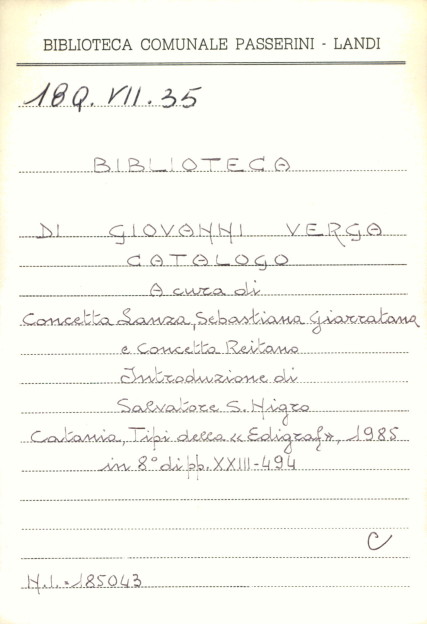 BIBLIOTECA COMUNALE PASSERINI - LANDI
18Q. VII. 35
BIBLIOTECA
DI GIOVANNI VERGA
CATALOGO
A cura di
Concetta Lanza, Sebastiana Giarratana
e Concetto Reitano
Introduzione di
Salvatore S. Nigro
Catania, Tipi della « Edigraf », 1985
in 8° di pp. XXIII-494
C
N.I. 185043